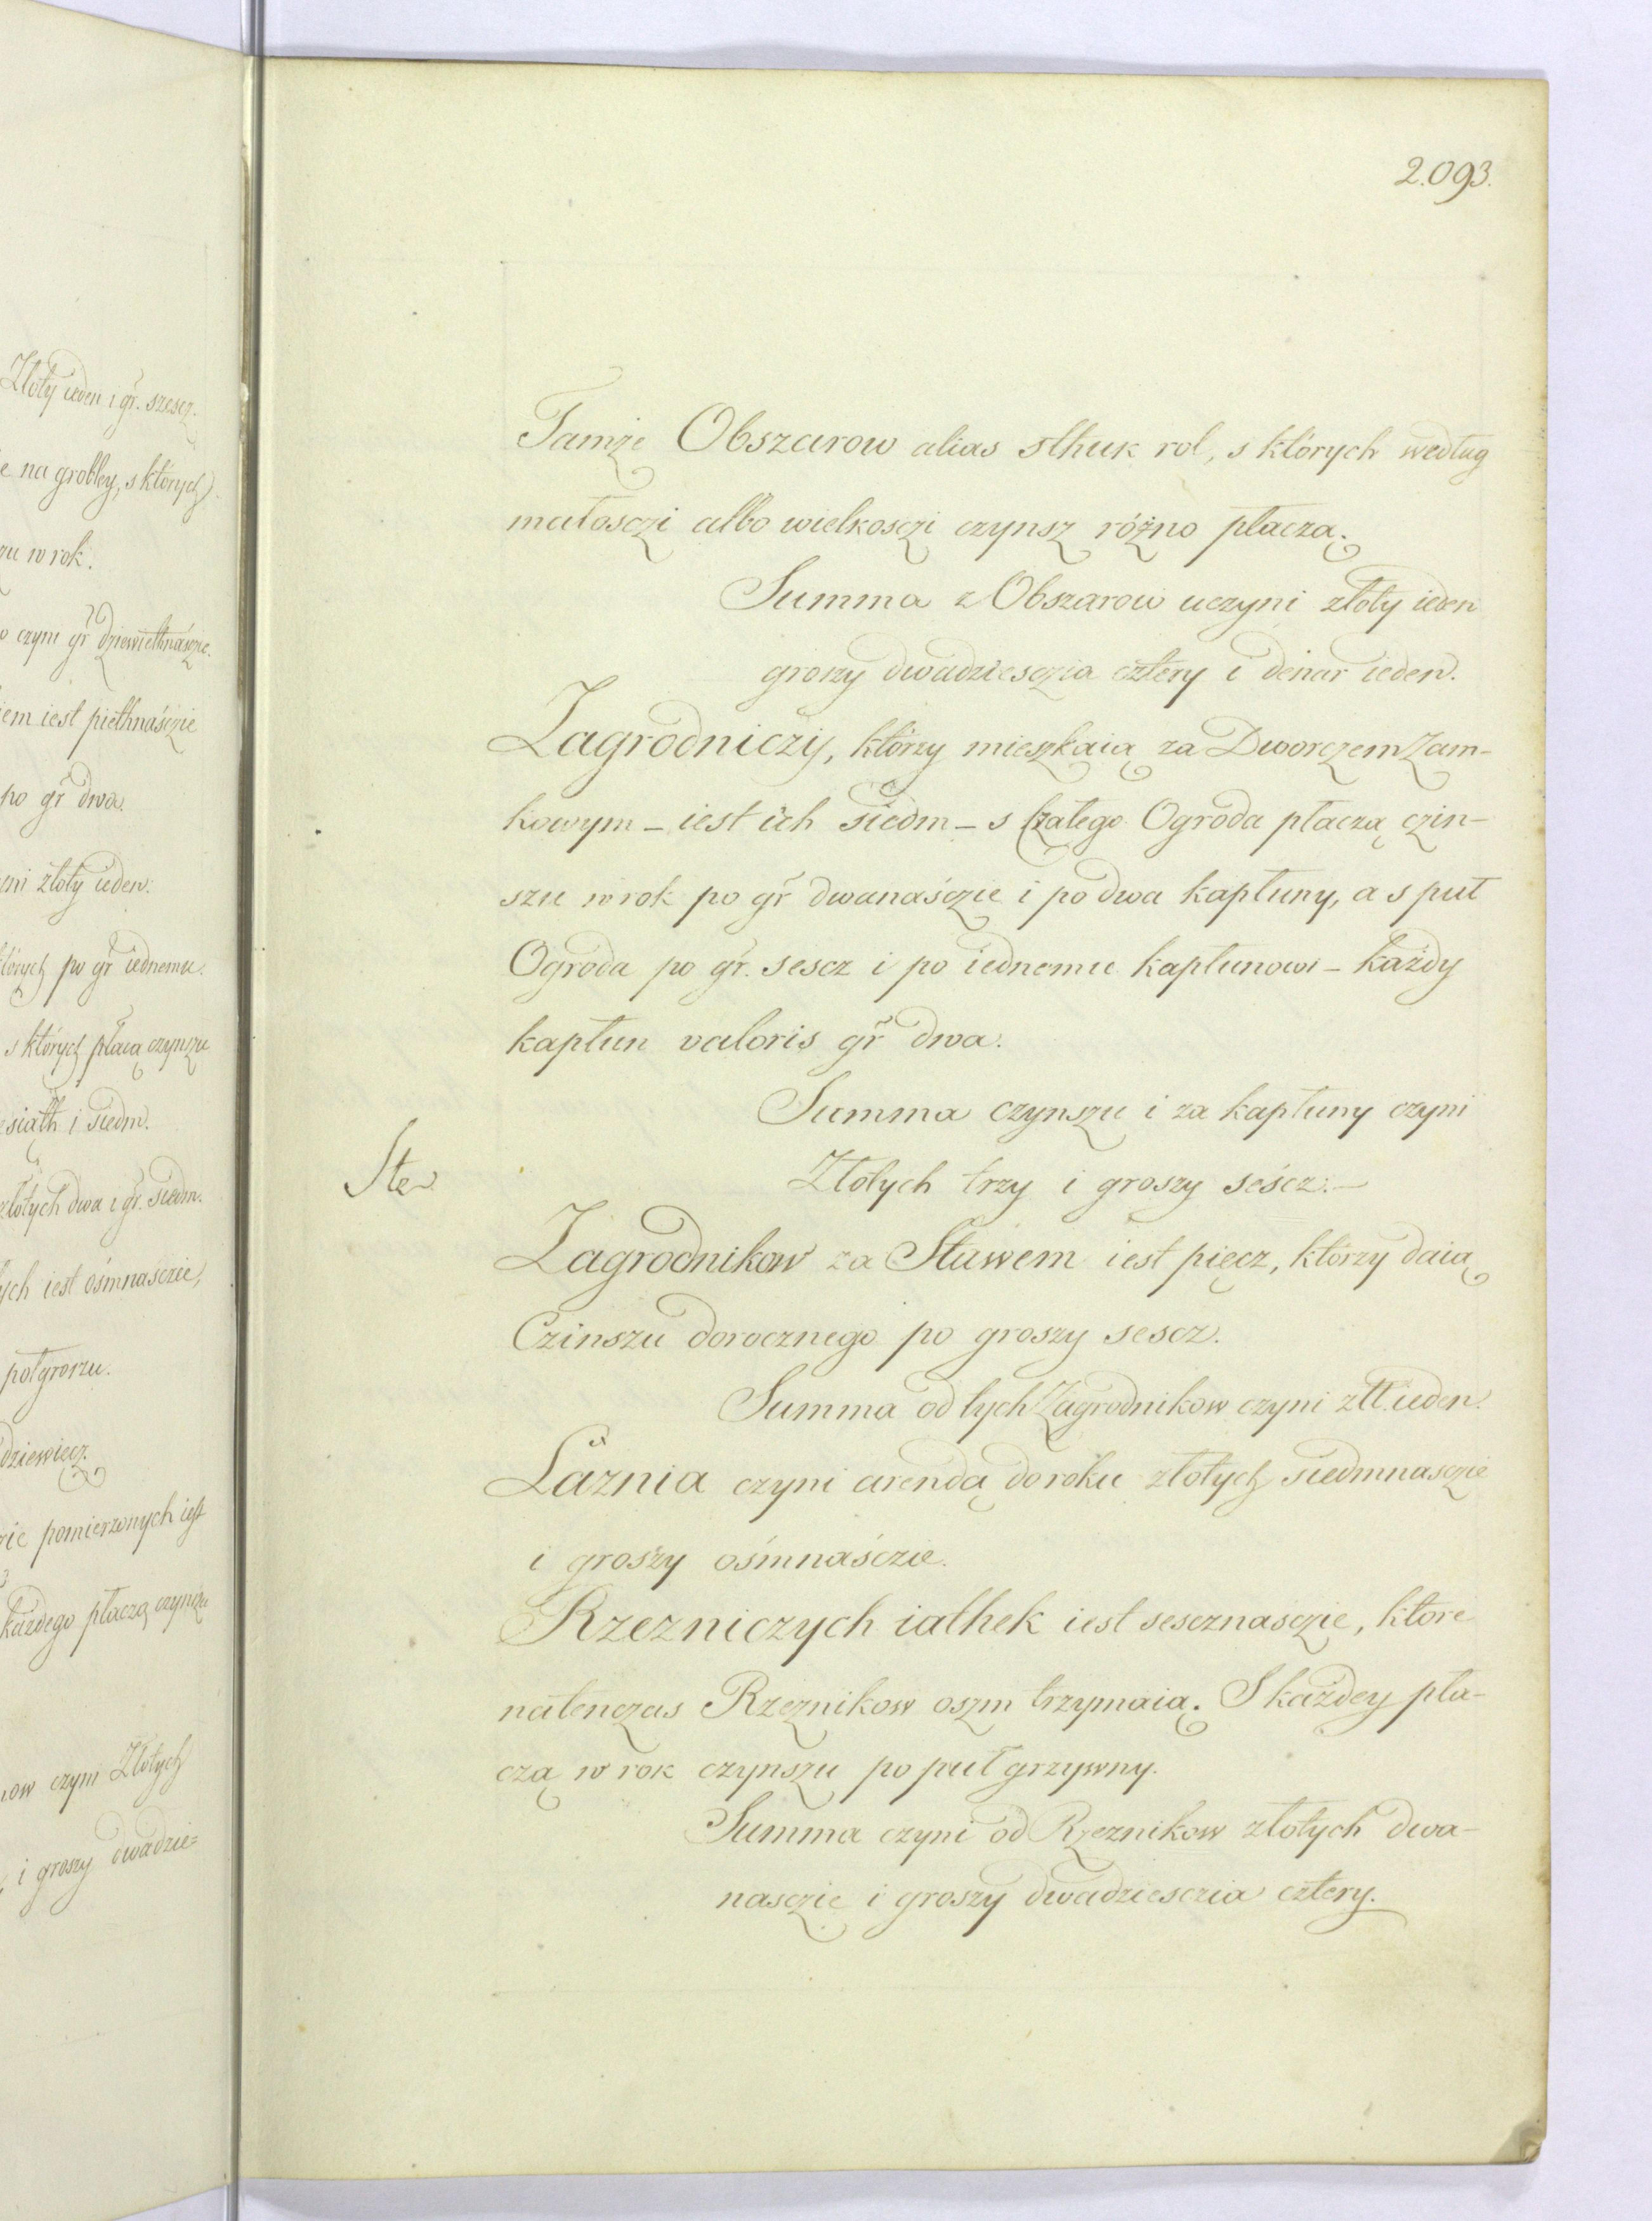 Złoty ieden i gr. szescz.
e na grobley, s których
zu w rok.
o czyni gr dziewiethnasczie.
iem iest piethnaście
po gr dwa.
yni złoty ieden.
których po gr iednemu.
s których płacą czynszu
esiąth i siedm.
złotych dwa i gr. siedm.
ych iest ośmnasczie,
połgroszu.
dziewięcz.
rie pomierzonych iest
każdego płaczą czynszu
ow czyni Złotych
i groszy dwadzie=
2.093.
Tamże Obszarow alias sthuk rol, s których według
małosczi albo wielkosczi czynsz różno płaczą.
Summa z Obszarow uczyni złoty ieden
groszy dwadziesczia cztery i denar ieden.
Zagrodniczy, którzy mieszkaią za Dworczem Zam-
kowym - iest ich siedm - s Czałego Ogroda płaczą czin-
szu w rok po gr dwanaśczie i po dwa kapłuny, a s puł
Ogroda po gr. sescz i po iednemu kapłunowi - każdy
kapłun valoris gr dwa.
Summa czynszu i za kapłuny czyni
Złotych trzy i groszy seścz.-
Ste
Zagrodnikow za Stawem iest pięcz, którzy daią
Czinszu dorocznego po groszy sescz.
Summa od tych Zagrodnikow czyni złł. ieden.
Łaznia czyni arendą do roku złotych siedmnasczie
i groszy ośmnaśczie.
Rzezniczych iathek iest sescznasczie, które
natenczas Rzeznikow oszm trzymaią. S każdey pła-
czą w rok czynszu po puł grzywny.
Summa czyni od Rzeznikow złotych dwa-
nasczie i groszy dwadziesczia cztery.